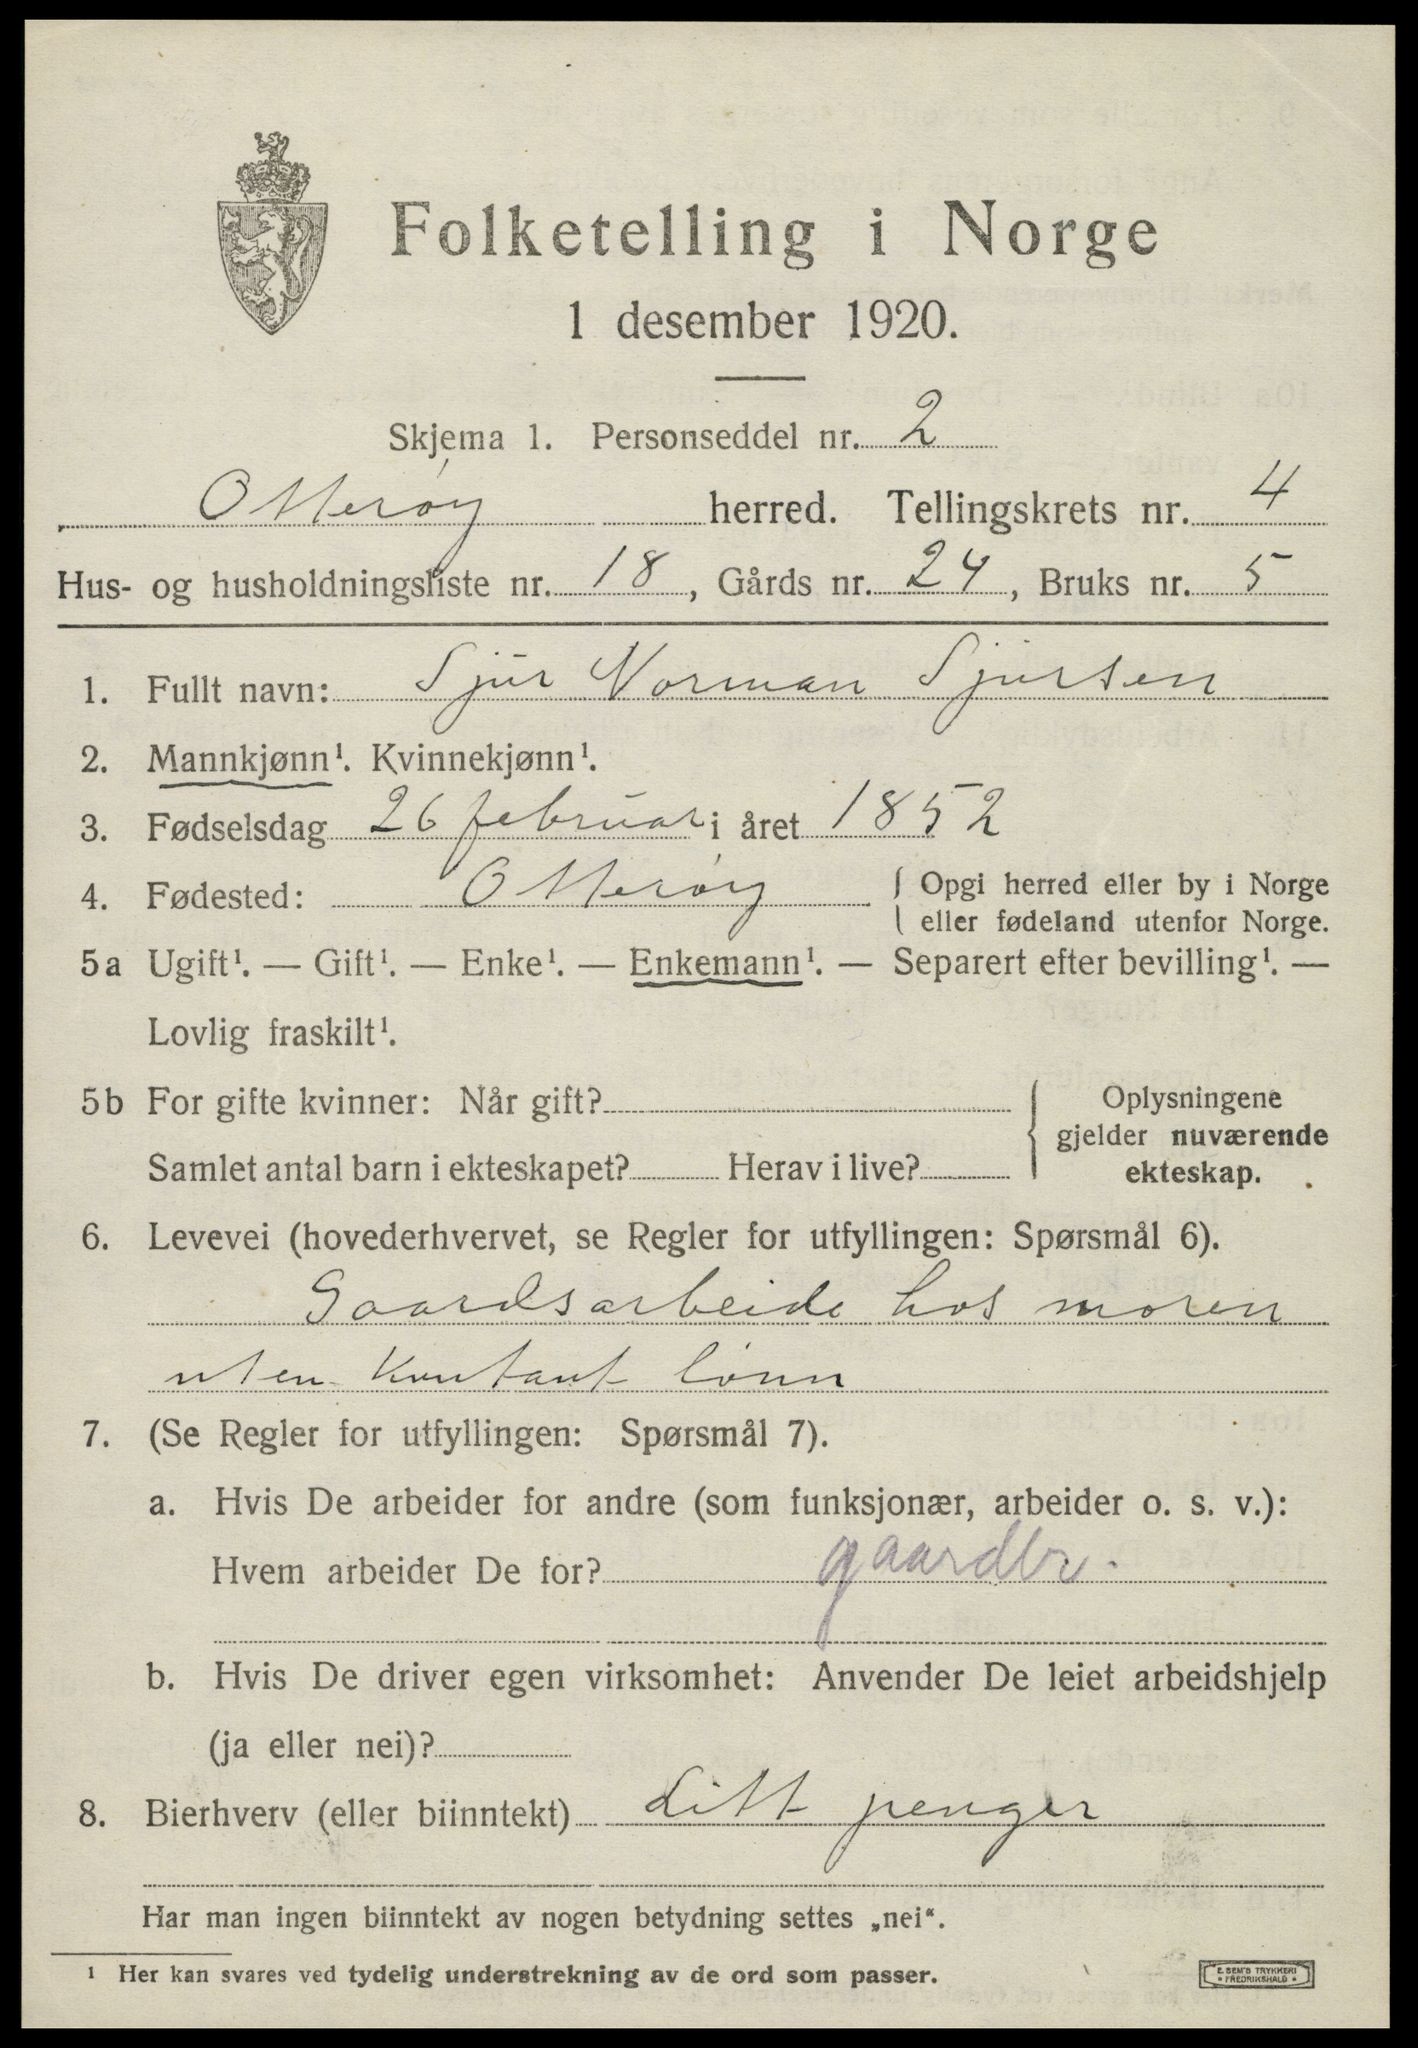 Folketelling i Norge
1 desember 1920.
Skjema 1. Personseddel nr. 2
Otterøy herred. Tellingskrets nr. 4
Hus- og husholdningsliste nr. 18, Gårds nr. 24, Bruks nr. 5
1. Fullt navn: Sjur Norman Sjursen
2. Mannkjønn¹. Kvinnekjønn¹.
3. Fødselsdag 26 februar i året 1852
4. Fødested: Otterøy { Opgi herred eller by i Norge
eller fødeland utenfor Norge.
5a Ugift¹. — Gift¹. — Enke¹. — Enkemann¹. — Separert efter bevilling¹. —
Lovlig fraskilt¹.
5b For gifte kvinner: Når gift? { Oplysningene
gjelder nuværende
Samlet antal barn i ekteskapet? Herav i live? ekteskap.
6. Levevei (hovederhvervet, se Regler for utfyllingen: Spørsmål 6).
Gaardsarbeide hos moren
uten kontant lønn
7. (Se Regler for utfyllingen: Spørsmål 7).
a. Hvis De arbeider for andre (som funksjonær, arbeider o. s. v.):
Hvem arbeider De for? gaardbr.
b. Hvis De driver egen virksomhet: Anvender De leiet arbeidshjelp
(ja eller nei)?
8. Bierhverv (eller biinntekt) Litt penger
Har man ingen biinntekt av nogen betydning settes „nei“.
¹ Her kan svares ved tydelig understrekning av de ord som passer.
E. SEM'S TRYKKERI
FREDRIKSHALD